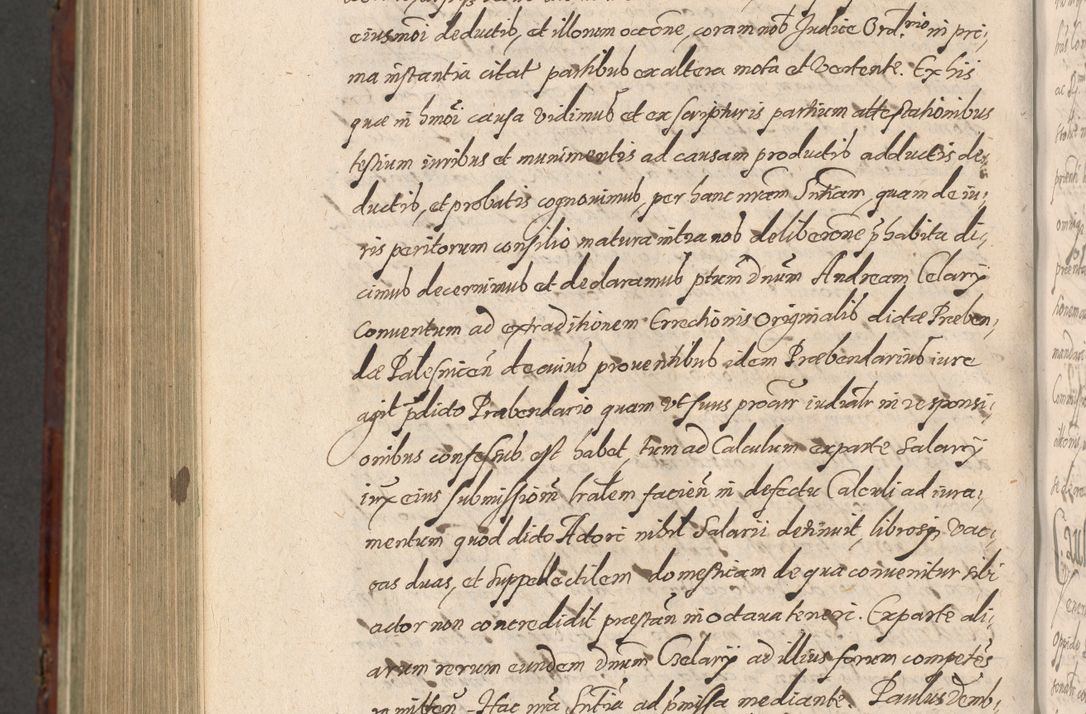 eiusmoi deductis, et illorum occone, coram nob Judice Ord.rio in pri,
ma instantia citat partibus ex altera mota et vertente. Ex his
quæ in hmoi causa vidimus et ex scripturis partium attestationibus
testium iuribus et munimentis ad causam productis adductis de,
ductis, et probatis cognovimus, per hanc nram Sntiam, quam de iu,
ris peritorum consilio matura intra nos deliberone p habita di,
cimus decernimus et declaramus ptum Dnum Andream Celarij
Conventum ad extraditionem Errectionis Originalis dictæ Præben,
dæ Palesnicen de cuius proventibus idem Præbendarius iure
agit pdicto Præbendario quam ut suus procur iudialr in responsi,
onibus confessus est habet, tum ad Calculum ex parte Salarij
iux eius submissiom lralem facien in defectu Calculi ad iura,
mentum quod dicto Actori nihil Salarii detinuit, librosq vac,
cas duas, et suppellectilem domesticam de qua convenitur sibi
actor non concredidit præstan in octava teneri. Ex parte ali,
arum rerum eundem Dnum Celarij ad illius forum competes
remitten. Hac nra Sntia ad pmissa mediante. Paulus Demb,